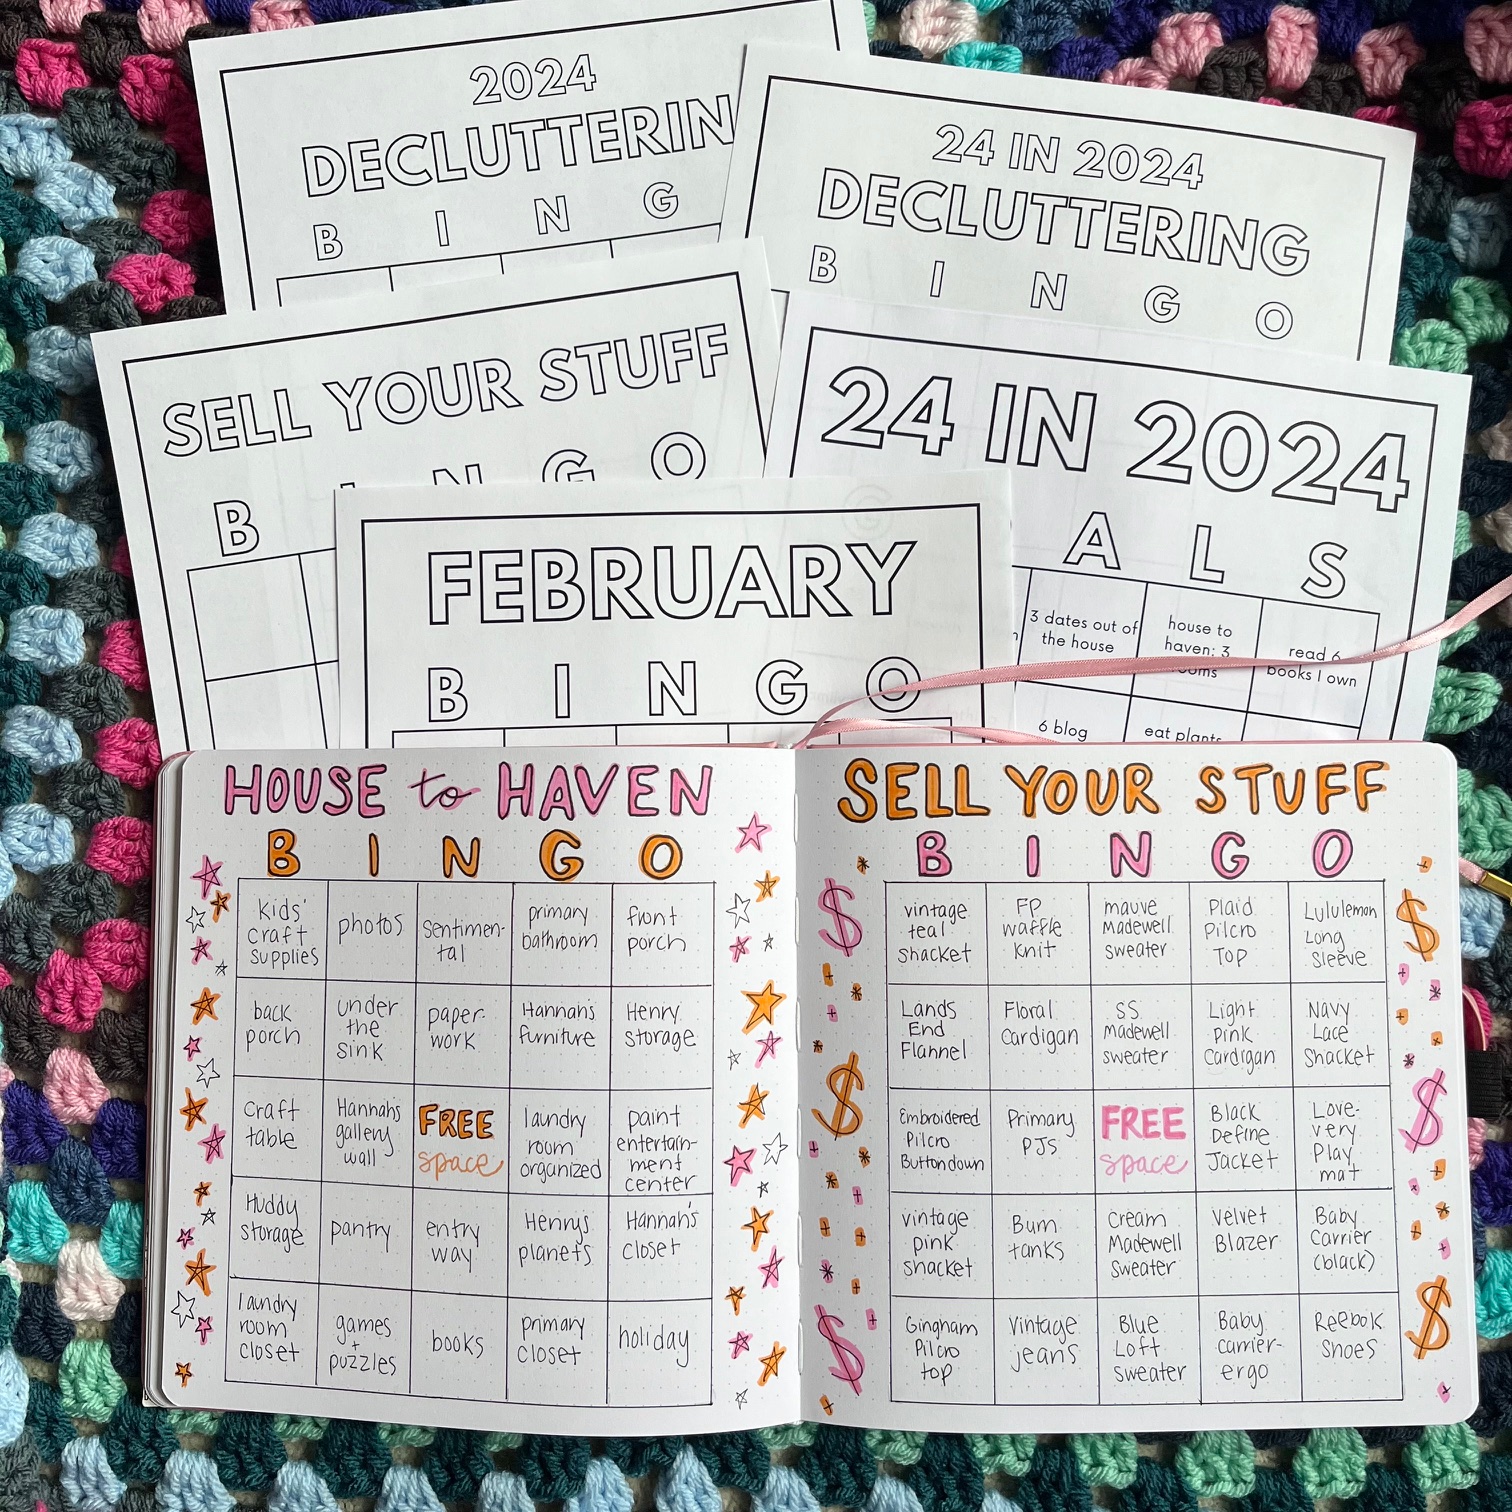 2024
DECLUTTERIN
B I N G
24 IN 2024
DECLUTTERING
B I N G O
SELL YOUR STUFF
B I N G O
24 IN 2024
A L S
3 dates out of
the house
house to
haven: 3
rooms
read 6
books I own
6 blog
eat plants
FEBRUARY
B I N G O
HOUSE to HAVEN
B I N G O
Kids'
Craft
Supplies
photos
Sentimen-
tal
primary
bathroom
front
porch
back
porch
under
the
sink
paper
work
Hannah's
furniture
Henry
storage
Craft
table
Hannah's
gallery
wall
FREE
space
laundry
room
organized
paint
entertain-
ment
center
Huddy
storage
pantry
entry
way
Henry's
planets
Hannah's
closet
laundry
room
closet
games
+
puzzles
books
primary
closet
holiday
SELL YOUR STUFF
B I N G O
vintage
teal
shacket
FP
waffle
knit
mauve
Madewell
sweater
Plaid
Pilcro
Top
Lululemon
Long
Sleeve
Lands
End
Flannel
Floral
Cardigan
SS
Madewell
sweater
Light
Pink
Cardigan
Navy
Lace
Shacket
Embroidered
Pilcro
Buttondown
Primary
PJS
FREE
space
Black
Define
Jacket
Love-
very
Play
mat
vintage
pink
shacket
Bum
tanks
Cream
Madewell
Sweater
Velvet
Blazer
Baby
Carrier
(black)
Gingham
Pilcro
top
Vintage
jeans
Blue
Loft
sweater
Baby
carrier-
ergo
Reebok
Shoes